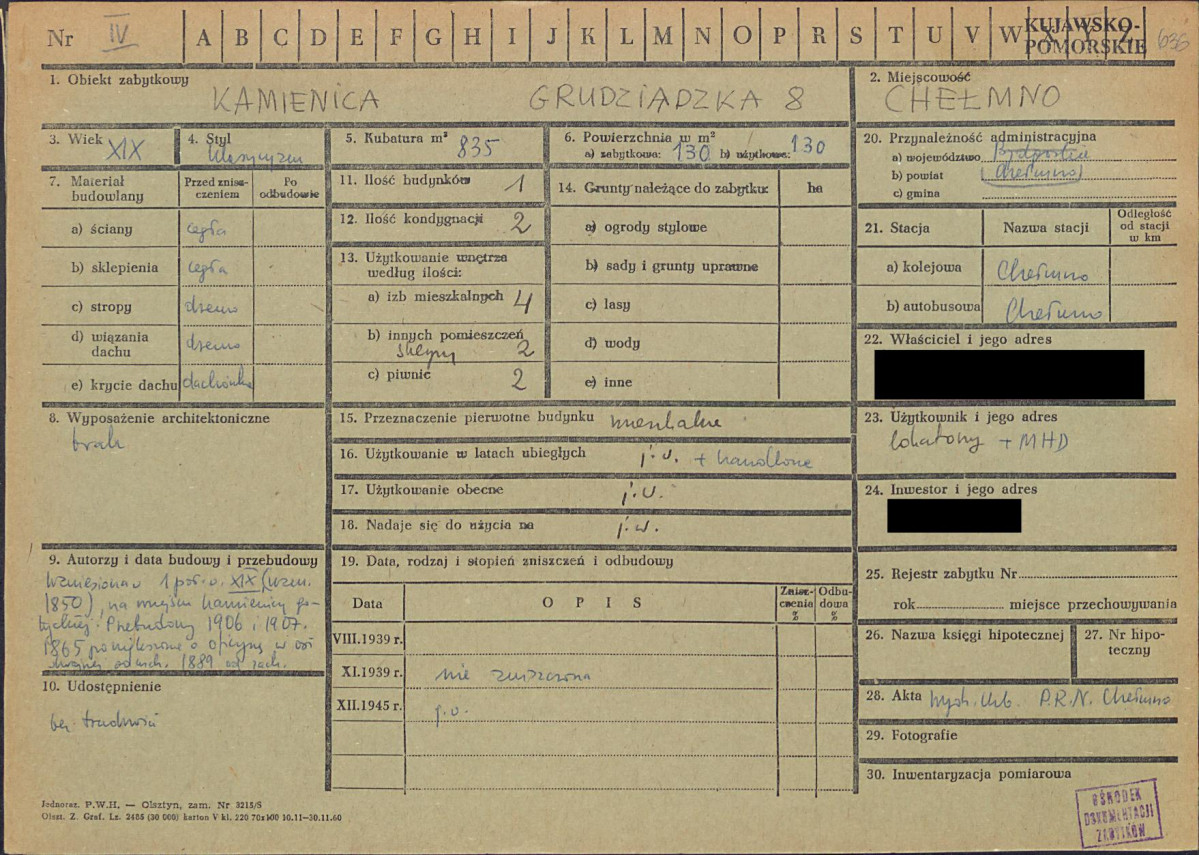 Nr IV A B C D E F G H I J K L M N O P R S T U V W X Y Z KUJAWSKO-
POMORSKIE 636
1. Obiekt zabytkowy
KAMIENICA GRUDZIĄDZKA 8
2. Miejscowość
CHEŁMNO
3. Wiek XIX
4. Styl
klasycyzm
5. Kubatura m³ 835
6. Powierzchnia w m²
a) zabytkowa: 130 b) użytkowa: 130
7. Materiał
budowlany
Przed znisz-
czeniem
Po
odbudowie
a) ściany cegła
b) sklepienia cegła
c) stropy drewno
d) wiązania
dachu drewno
e) krycie dachu dachówka
8. Wyposażenie architektoniczne
brak
9. Autorzy i data budowy i przebudowy
Wzniesiona w 1 poł. w. XIX (wzm.
1850), na miejscu kamienicy go-
tyckiej. Przebudowy 1906 i 1907.
1865 powiększone o oficynę w
1889 od zach.
10. Udostępnienie
bez trudności
11. Ilość budynków 1
12. Ilość kondygnacji 2
13. Użytkowanie wnętrza
według ilości:
a) izb mieszkalnych 4
b) innych pomieszczeń
sklepy 2
c) piwnic 2
14. Grunty należące do zabytku: ha
a) ogrody stylowe
b) sady i grunty uprawne
c) lasy
d) wody
e) inne
15. Przeznaczenie pierwotne budynku mieszkalne
16. Użytkowanie w latach ubiegłych j.w. + handlowe
17. Użytkowanie obecne j.w.
18. Nadaje się do użycia na j.w.
19. Data, rodzaj i stopień zniszczeń i odbudowy
Data OPIS Znisz-
czenia
% Odbu-
dowa
%
VIII.1939 r.
XI.1939 r. nie zniszczona
XII.1945 r. j.w.
20. Przynależność administracyjna
a) województwo Bydgoskie
b) powiat (Chełmno)
c) gmina
21. Stacja Nazwa stacji Odległość
od stacji
w km
a) kolejowa Chełmno
b) autobusowa Chełmno
22. Właściciel i jego adres
23. Użytkownik i jego adres
lokatorzy + MHD
24. Inwestor i jego adres
25. Rejestr zabytku Nr
rok miejsce przechowywania
26. Nazwa księgi hipotecznej
27. Nr hipo-
teczny
28. Akta Wydz. Kult. P.R.N. Chełmno
29. Fotografie
30. Inwentaryzacja pomiarowa
OŚRODEK
DOKUMENTACJI
ZABYTKÓW
Jednoraz. P.W.H. — Olsztyn, zam. Nr 3215/S
Olszt. Z. Graf. Lz. 2485 (30 000) karton V kl. 220 70x100 10.11-30.11.60